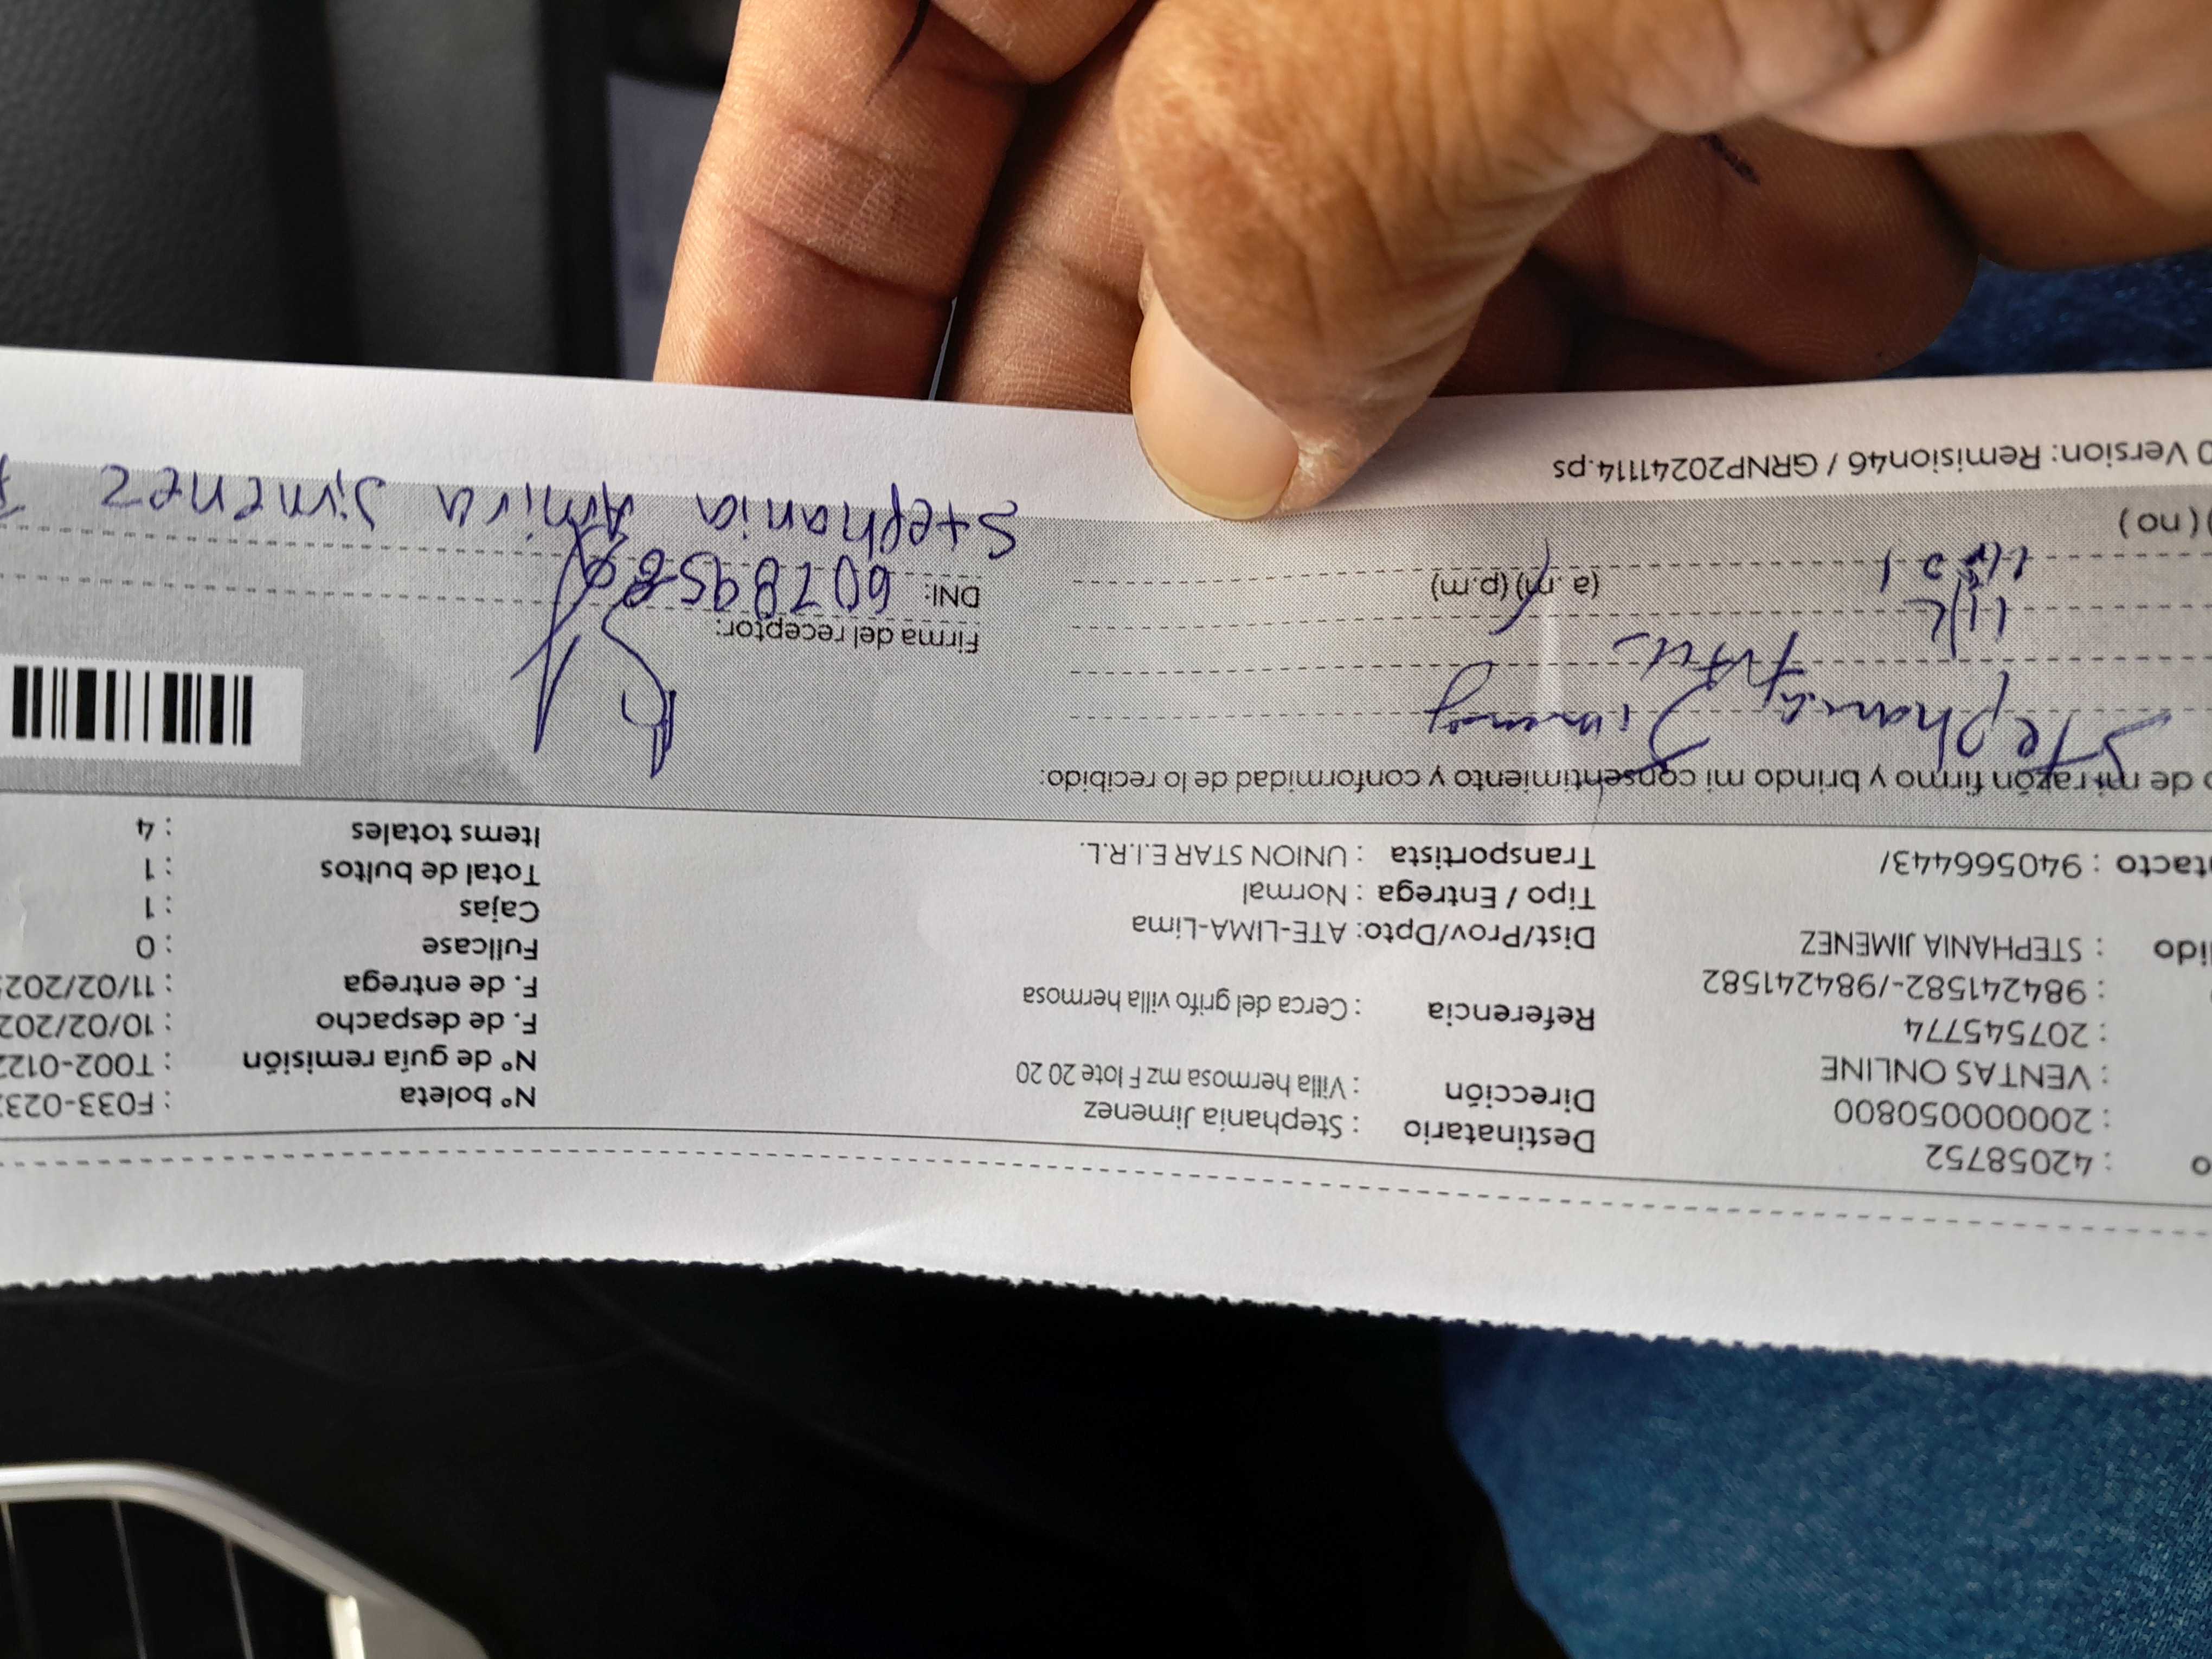 o : 42058752 Destinatario : Stephania Jimenez N° boleta : F033-023
: 20000050800 Dirección : Villa hermosa mz F lote 20 20 N° de guía remisión : T002-012
: VENTAS ONLINE F. de despacho : 10/02/202
: 207545774 Referencia : Cerca del grifo villa hermosa F. de entrega : 11/02/202
: 984241582-/984241582 Fullcase : 0
dido : STEPHANIA JIMENEZ Dist/Prov/Dpto: ATE-LIMA-Lima Cajas : 1
Tipo / Entrega : Normal Total de bultos : 1
tacto : 940566443/ Transportista : UNION STAR E.I.R.L. Items totales : 4
o de mi razón firmo y brindo mi consentimiento y conformidad de lo recibido:
Stephania Jimenez
Firma del receptor:
(a.m) (p.m) DNI: 60789586
) (no) Stephania Amira Jimenez
0 Version: Remision46 / GRNP20241114.ps